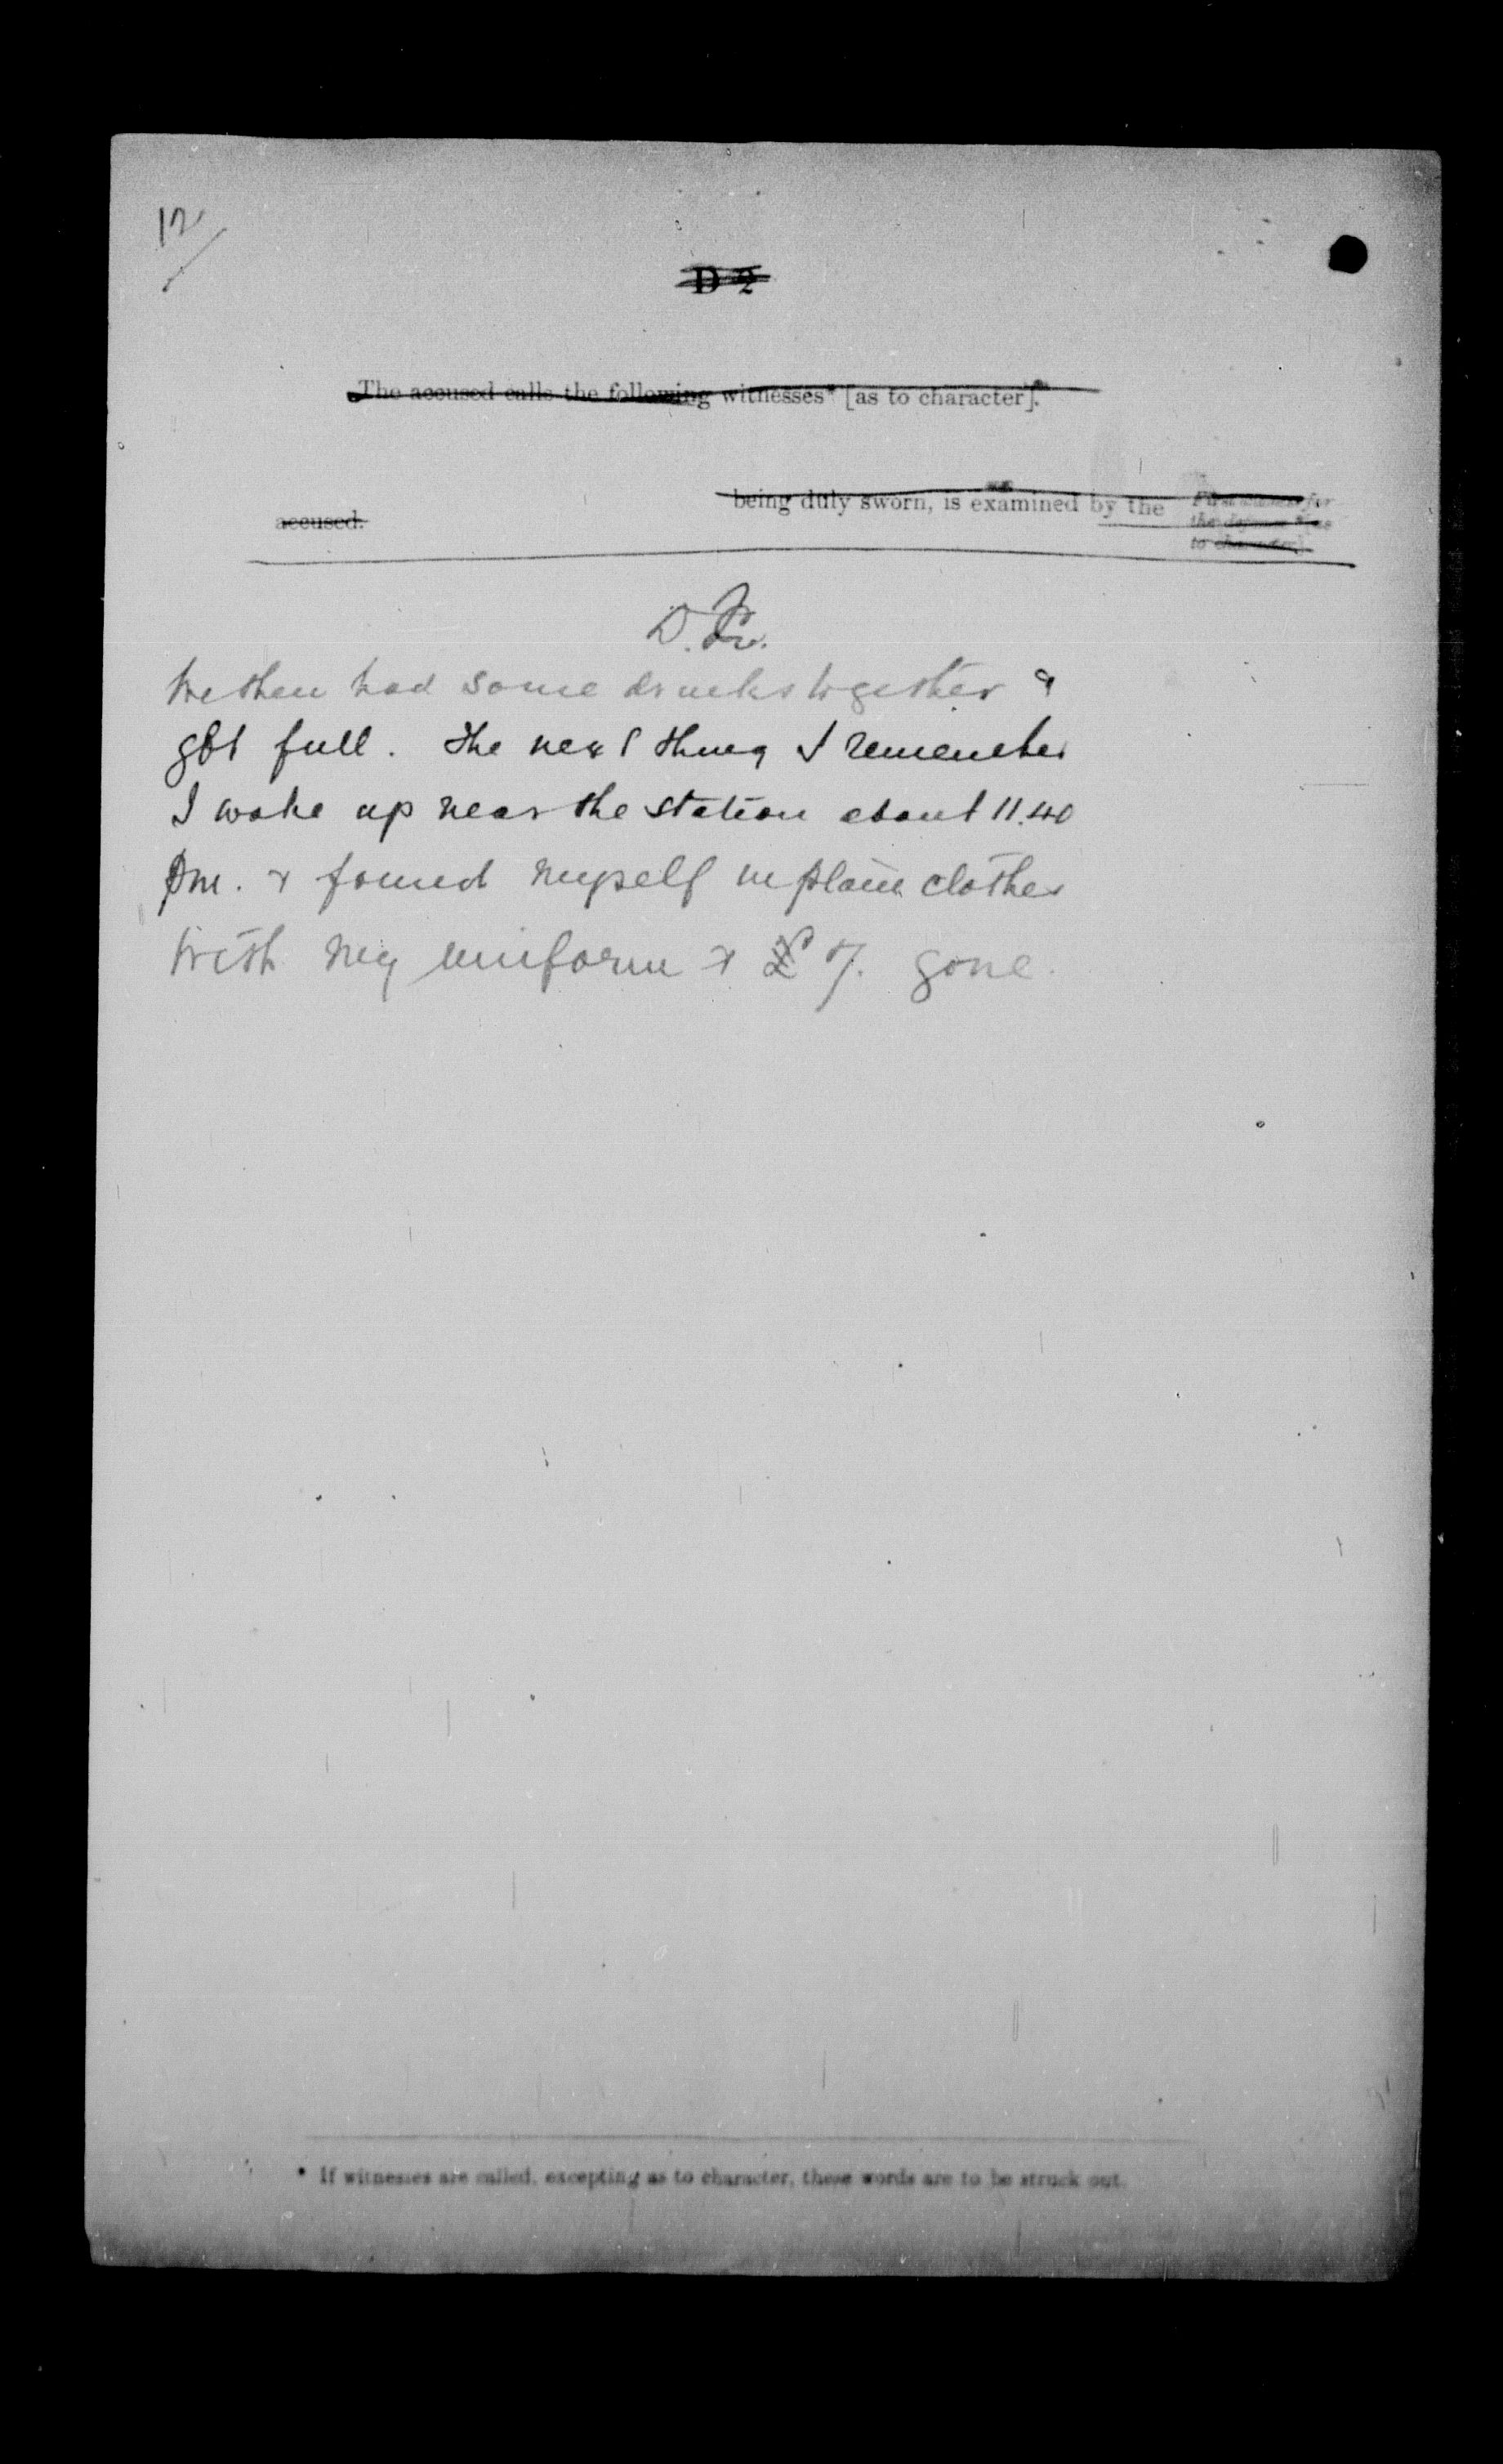 12
D 2
The accused calls the following witnesses* [as to character].*
being duly sworn, is examined by the
accused.
First witness for
the defence *[as
to character].
We then had some drinks together &
got full. The next thing I remember
I woke up near the station about 11.40
pm. & found myself in plain clothes
with my uniform & £7. gone.
* If witnesses are called, excepting as to character, these words are to be struck out.